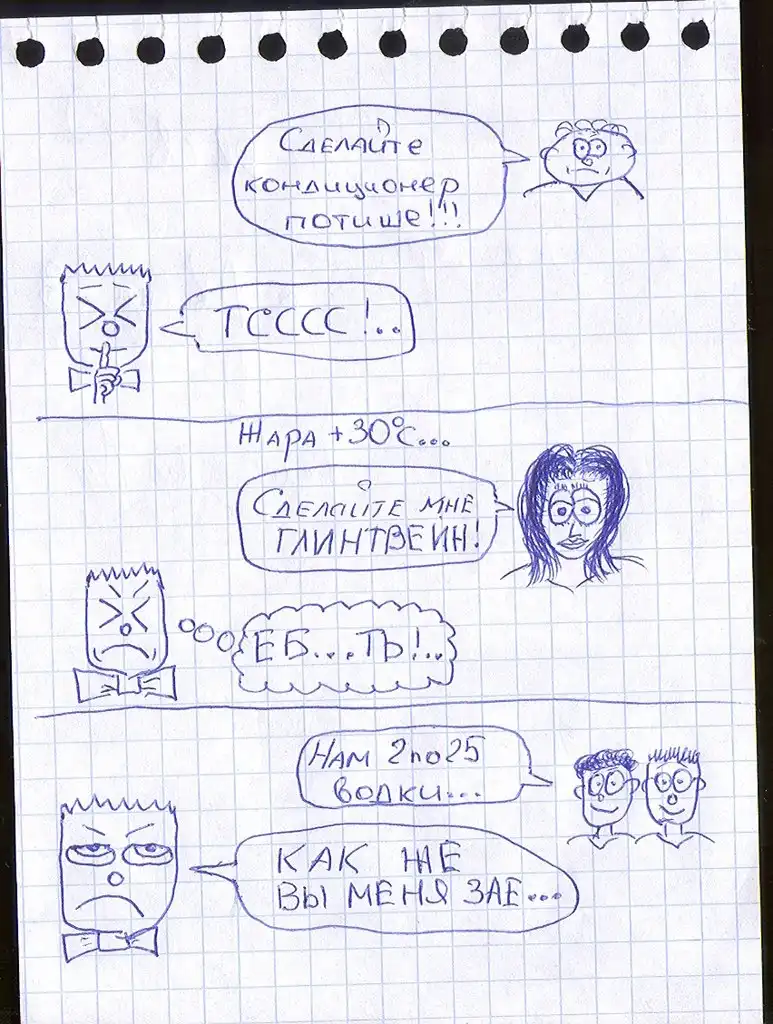 Сделайте
кондиционер
потише!!!
ТСССС!..
Жара +30°С...
Сделайте мне
ГЛИНТВЕИН!
ЕБ...ТЬ!..
Нам 2 по 25
водки...
КАК ЖЕ
ВЫ МЕНЯ ЗАЕ...